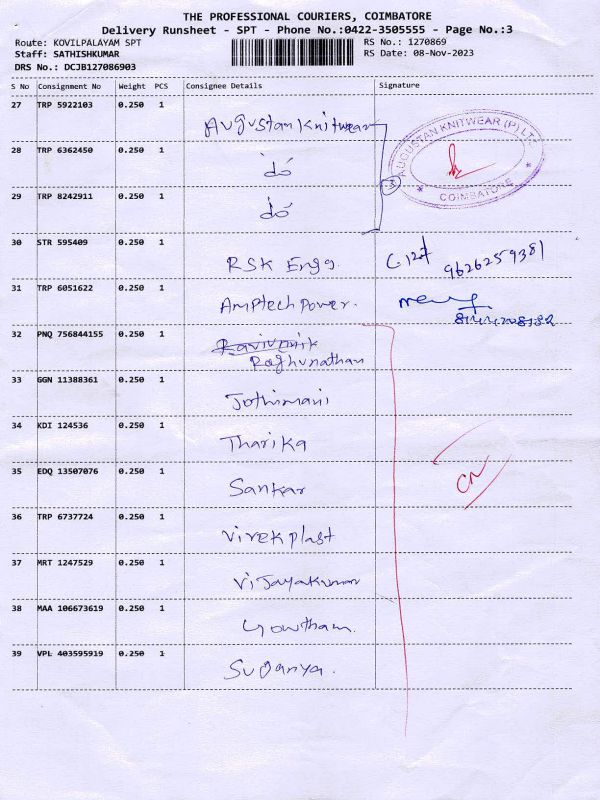 THE PROFESSIONAL COURIERS, COIMBATORE
Delivery Runsheet - SPT - Phone No.:0422-3505555 - Page No.:3
Route: KOVILPALAYAM SPT
RS No.: 1270869
Staff: SATHISHKUMAR
RS Date: 08-Nov-2023
DRS No.: DCJB127086903
S No Consignment No Weight PCS Consignee Details Signature
27 TRP 5922103 0.250 1 Augustan Knitwear
AUGUSTAN KNITWEAR (P) LT
COIMBATORE
28 TRP 6362450 0.250 1 do
29 TRP 8242911 0.250 1 do
3
30 STR 595409 0.250 1 RSK Engg. 9626259381
31 TRP 6051622 0.250 1 Amptech Power.
32 PNQ 756844155 0.250 1
Raghunathan
33 GGN 11388361 0.250 1 Jothimani
34 KDI 124536 0.250 1 Tharika
35 EDQ 13507076 0.250 1 Sankar
CN
36 TRP 6737724 0.250 1 Virekplast
37 MRT 1247529 0.250 1 Vijayakumar
38 MAA 106673619 0.250 1 Gowtham.
39 VPL 403595919 0.250 1 Suganya.